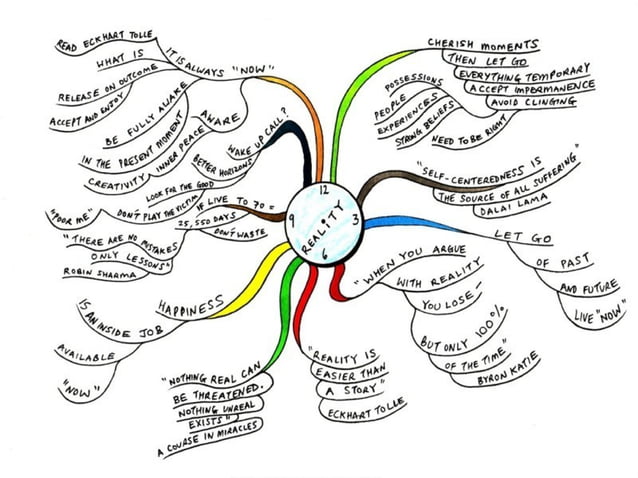 12
3
6
9
REALITY
CHERISH MOMENTS
THEN LET GO
EVERYTHING TEMPORARY
ACCEPT IMPERMANENCE
AVOID CLINGING
POSSESSIONS
PEOPLE
EXPERIENCES
STRONG BELIEFS
NEED TO BE RIGHT
"SELF-CENTEREDNESS IS
THE SOURCE OF ALL SUFFERING"
DALAI LAMA
LET GO
OF PAST
AND FUTURE
LIVE "NOW"
"WHEN YOU ARGUE
WITH REALITY
YOU LOSE -
BUT ONLY 100%
OF THE TIME"
BYRON KATIE
"REALITY IS
EASIER THAN
A STORY"
ECKHART TOLLE
"NOTHING REAL CAN
BE THREATENED.
NOTHING UNREAL
EXISTS"
A COURSE IN MIRACLES
HAPPINESS
IS AN INSIDE JOB
AVAILABLE
"NOW"
IF LIVE TO 70 =
25,550 DAYS
DON'T WASTE
LOOK FOR THE GOOD
DON'T PLAY THE VICTIM
"POOR ME"
"THERE ARE NO MISTAKES
ONLY LESSONS"
ROBIN SHARMA
WAKE UP CALL?
BETTER HORIZONS
AWARE
INNER PEACE
CREATIVITY
IT IS ALWAYS "NOW"
READ ECKHART TOLLE
WHAT IS
RELEASE ON OUTCOME
ACCEPT AND ENJOY
BE FULLY AWAKE
IN THE PRESENT MOMENT